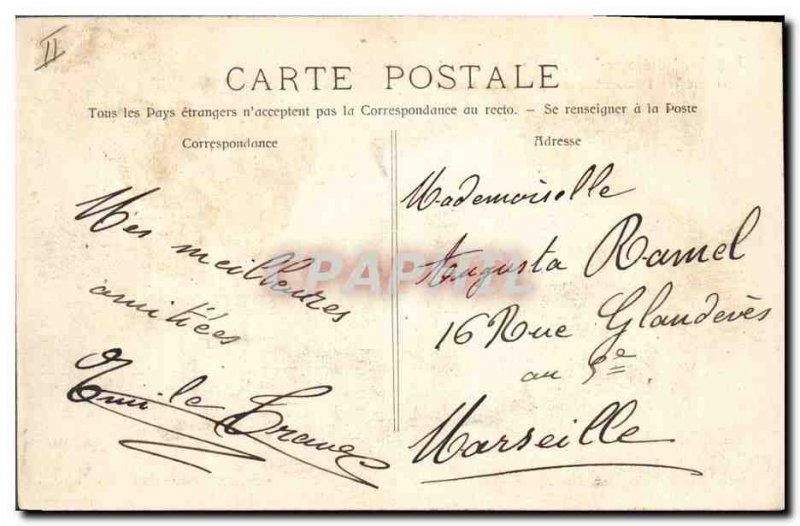 11
CARTE POSTALE
Tous les Pays étrangers n'acceptent pas la Correspondance au recto. - Se renseigner à la Poste
Correspondance
Adresse
Mes meilleures
amitiées
Emile
Mademoiselle
Augusta Ramel
16 Rue Glandevès
au 5e
Marseille
CPAPHIL